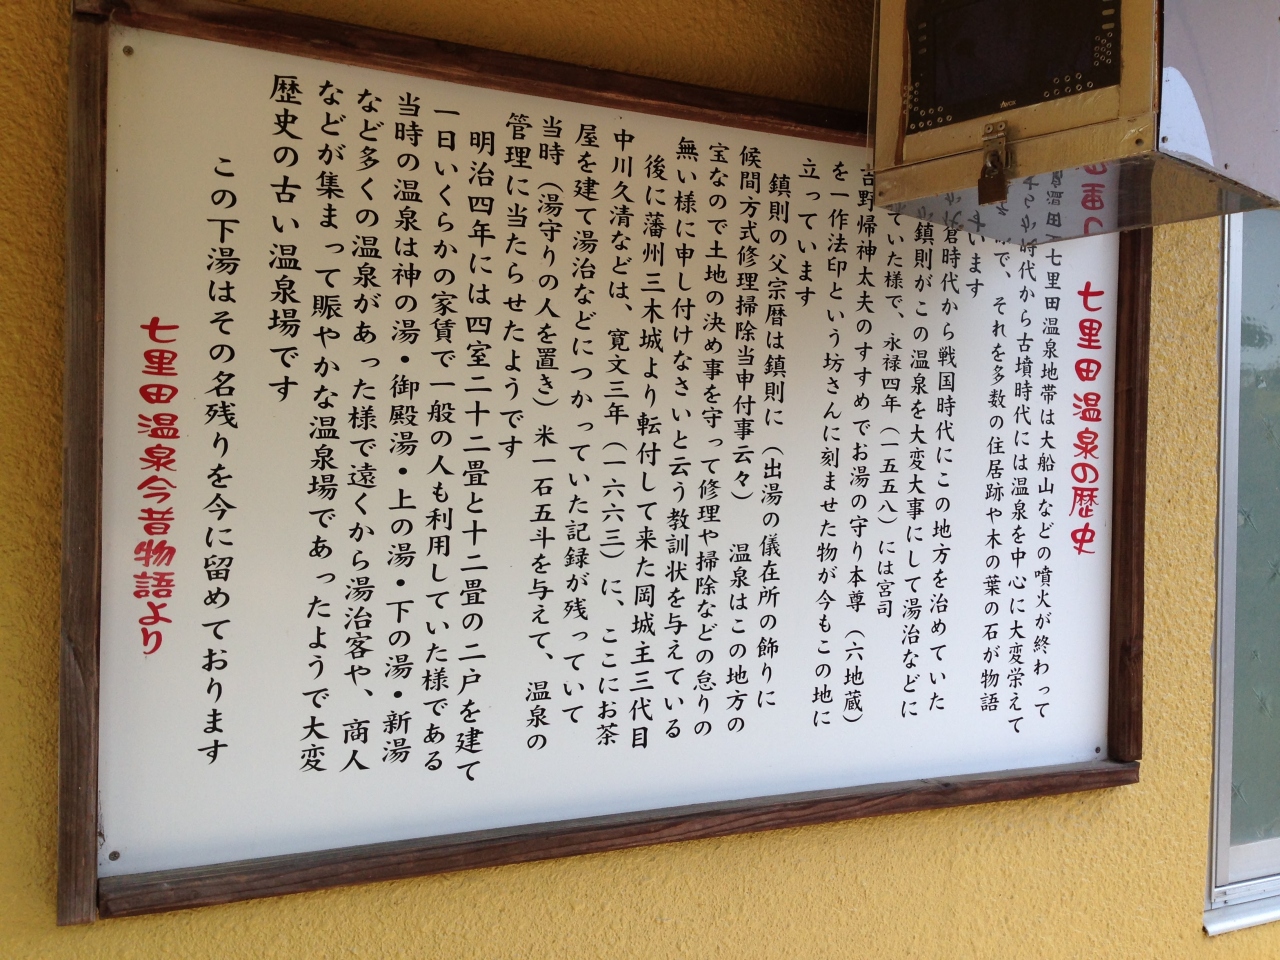 七里田温泉の歴史
七里田温泉地帯は大船山などの噴火が終わって
時代から古墳時代には温泉を中心に大変栄えて
で、それを多数の住居跡や木の葉の石が物語
います
倉時代から戦国時代にこの地方を治めていた
鎮則がこの温泉を大変大事にして湯治などに
ていた様で、永禄四年（一五五八）には宮司
吉野帰神太夫のすすめでお湯の守り本尊（六地蔵）
を一作法印という坊さんに刻ませた物が今もこの地に
立っています
鎮則の父宗暦は鎮則に（出湯の儀在所の飾りに
候間方式修理掃除当申付事云々）　温泉はこの地方の
宝なので土地の決め事を守って修理や掃除などの怠りの
無い様に申し付けなさいと云う教訓状を与えている
後に藩州三木城より転付して来た岡城主三代目
中川久清などは、寛文三年（一六六三）に、ここにお茶
屋を建て湯治などにつかっていた記録が残っていて
当時（湯守りの人を置き）米一石五斗を与えて、温泉の
管理に当たらせたようです
明治四年には四室二十二畳と十二畳の二戸を建て
一日いくらかの家賃で一般の人も利用していた様である
当時の温泉は神の湯・御殿湯・上の湯・下の湯・新湯
など多くの温泉があった様で遠くから湯治客や、商人
などが集まって賑やかな温泉場であったようで大変
歴史の古い温泉場です
この下湯はその名残りを今に留めております
七里田温泉今昔物語より